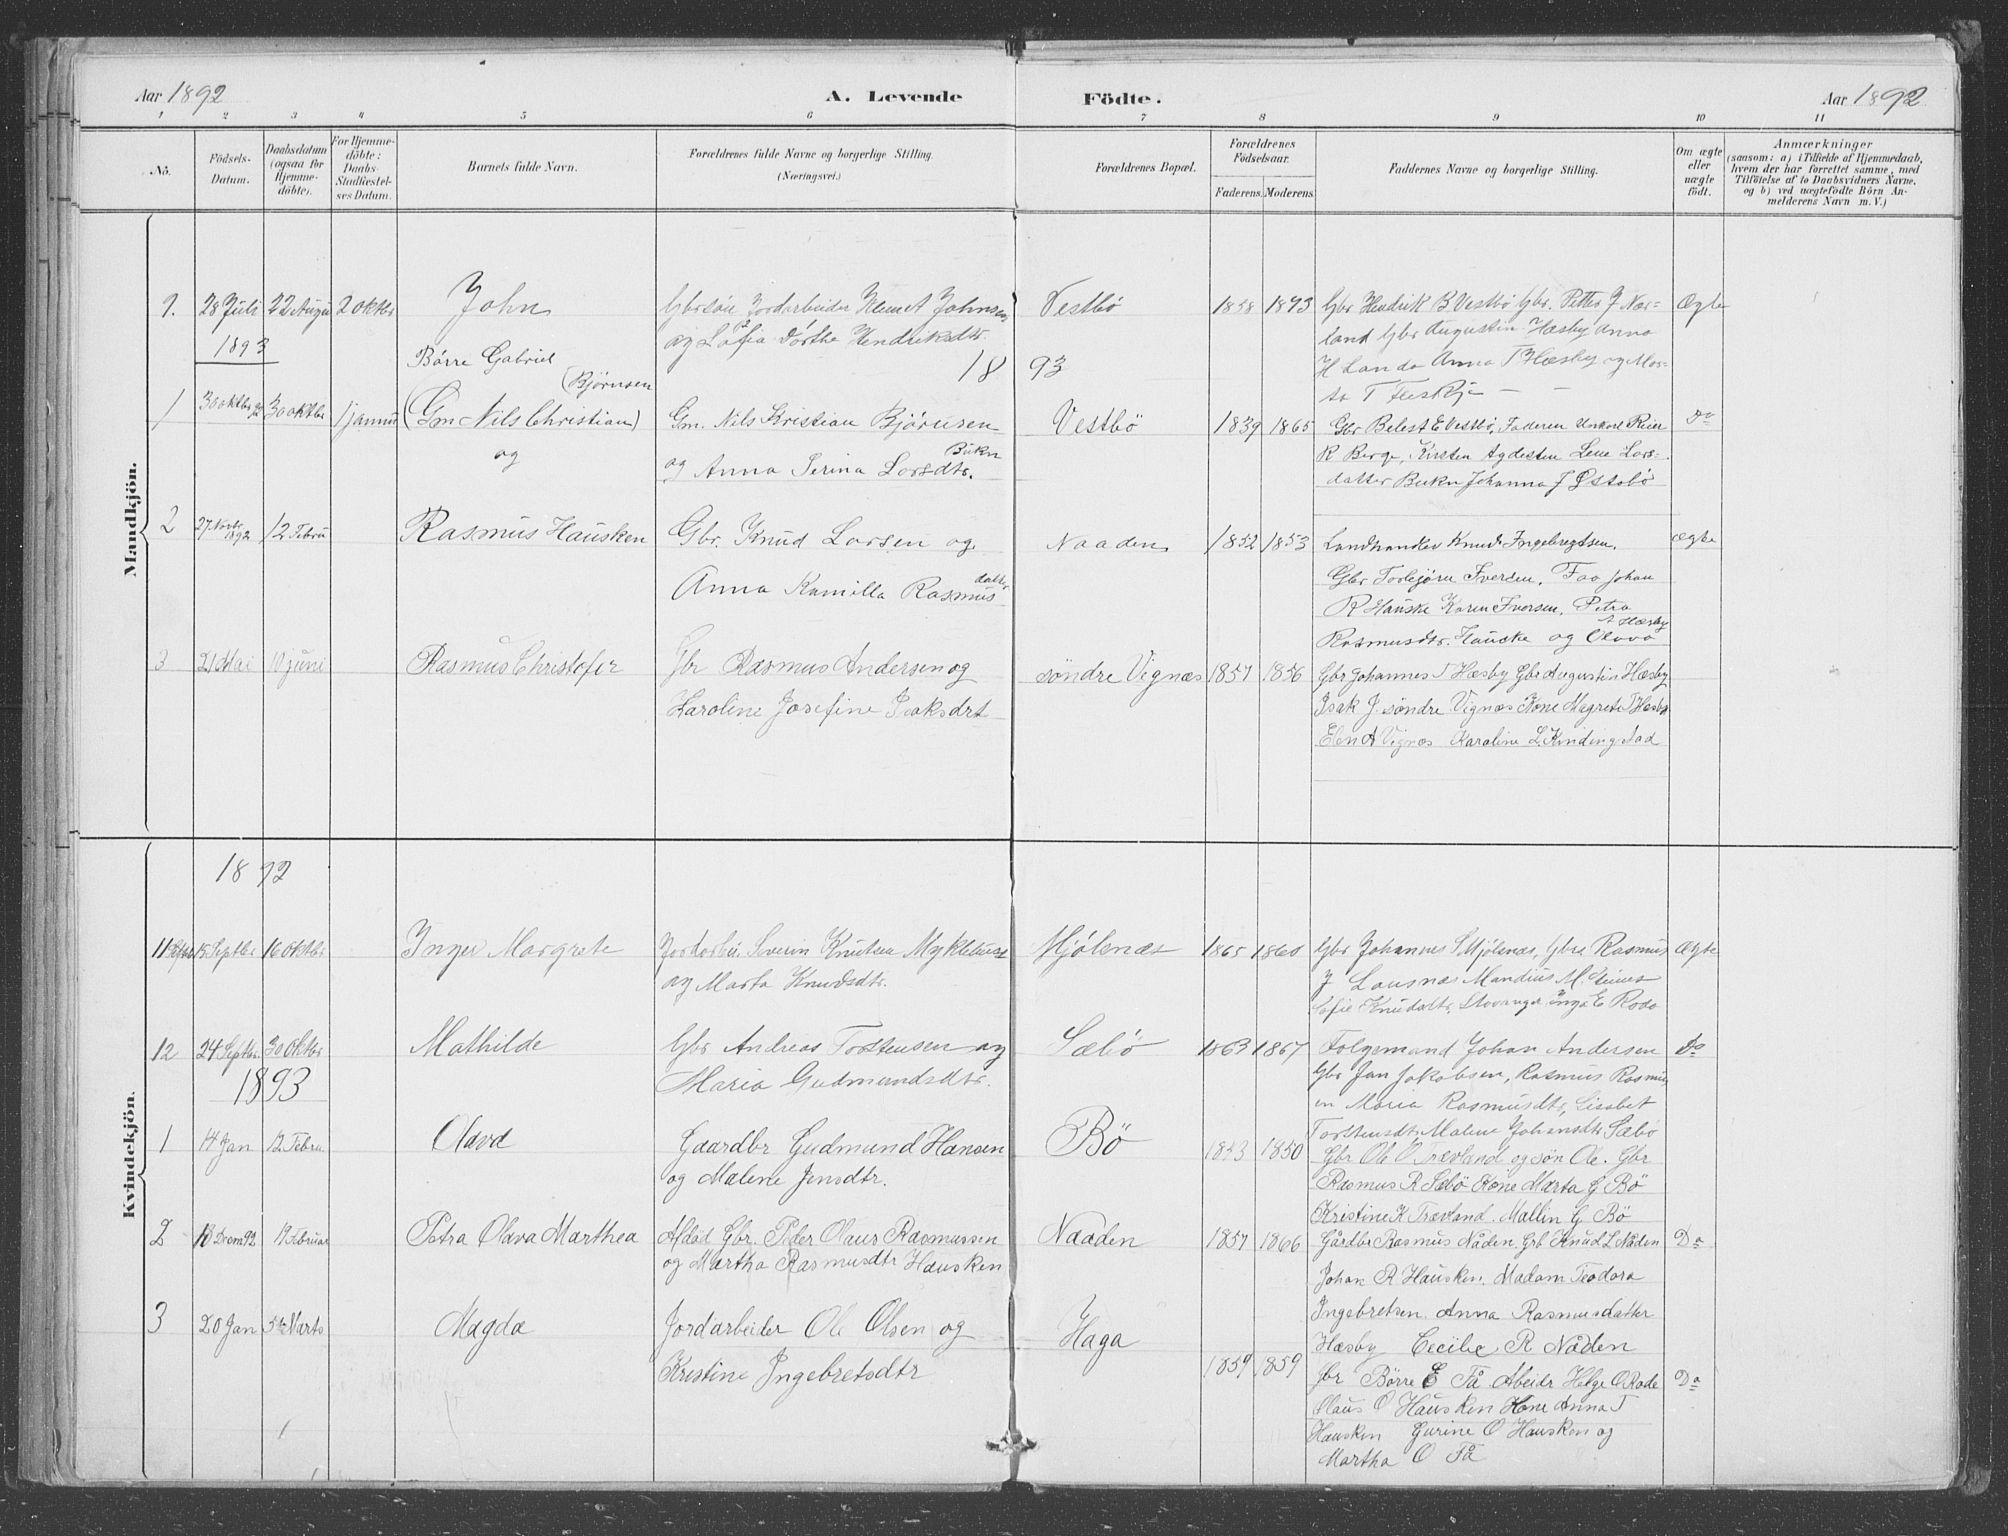 Aar 1892
A. Levende Födte.
Aar 1892
1 2 3 4 5 6 7 8 9 10 11
No.
Födsels-Datum.
Daabsdatum (ogsaa for Hjemme-döbte).
For Hjemme-döbte: Daabs-Stadfæstel-ses Datum.
Barnets fulde Navn.
Forældrenes fulde Navne og borgerlige Stilling.
(Næringsvei.)
Forældrenes Bopæl.
Forældrenes Födselsaar.
Faderens. Moderens.
Faddernes Navne og borgerlige Stilling.
Om ægte eller uægte födt.
Anmærkninger
(saasom: a) i Tilfælde af Hjemmedaab, hvem der har forrettet samme, med Tilföielse af to Daabsvidners Navne, og b) ved uægtefödte Börn An-melderens Navn m. V.)
Mandkjön.
9. 28 Juli 22 Augu 2 oktbr John
Gbrsön Jordarbeider Klemet Johnsen
og Sofia Dorthe Hendriksdtr.
Vestbö 1858 1873
Gbr Hendrik B Vestbö Gbr. Petter J Nær-
land Gbr Augustin Hæsby Anna
H Landa Anna T Hæsby og Mar-
ta T
Ægte
1893
18 93
Børre Gabriel
(Björnsen
1 30 oktbr 92 30 oktbr 1 januar (Gm Nils Christian)
og
Gm. Nils Kristian Björnsen
og Anna Serina Larsdtr. Bukn
Vestbö 1839 1865
Gbr Belest E Vestbö, Faderen Unkarl Reier
R Berge, Kirsten Aydesten Lene Lars-
datter Bukn Johanna J Østabö
Do
2 27 Novbr 1892 12 Febru Rasmus Hausken
Gbr. Knud Larsen og
Anna Kamilla Rasmus datter
Naaden 1852 1853
Landhandler Knud Ingebregtsen.
Gbr Torbjörn Iversen. Faa Johan
R Hauske Karen Iversen. Petra
Rasmusdtr. Hauske og Olava A Hæsby
ægte
3 21 Mai 10 juni Rasmus Christofer
Gbr Rasmus Andersen og
Karoline Josefine Isaksdrt
söndre Vignæs 1857 1856
Gbr Johannes T Hæsby Gbr Augustin Hæsby
Isak J. söndre Vignæs Kone Magrete T Hæsby
Elen A Vignæs Karaline L Kindingstad
Kvindekjön.
1892
11 15 Septbr 16 oktbr Inger Margrete
Jordarbei. Severin Knutsen Myklebust
og Marta Knudsdtr.
Mjölsnæs 1865 1860
Gbr Johannes S Mjölsnæs, Gbr Rasmus
J Lausnæs Mandius M.
Sofie Knudsdtr, Stavanger Inga E Roda
Ægte
12 24 Septbr. 30 oktbr Mathilde
Gbr Andreas Torstensen og
Maria Gudmundsdtr.
Sæbö 1863 1867
Folgemand Johan Andersen
Gbr Jan Jakobsen, Rasmus Rasmus
en Maria Rasmusdtr, Lisabet
Torstensdtr Malene Johansdtr Sæbö
Do
1893
1 14 Jan 12 Febru. Olava
Gaardbr Gudmund Hansen
og Malene Jensdtr.
Bö 1853 1850
Gbr Ole O Trævland og sön Ole. Gbr
Rasmus R Sæbö Kone Marta G Bö
Kristine K Trævland. Mallin G Bö
2 18 Decm 92 19 Februar Petra Olava Marthea
Afdöd Gbr. Peder Olaus Rasmussen
og Martha Rasmusdtr Hausken
Naaden 1857 1866
Gårdbr Rasmus Nåden. Grb Knud L Nåden
Johan R Hausken. Madam Teodora
Ingebretsen. Anna Rasmusdatter
Hæsby Cecilie R Nåden
Do
3 20 Jan 5te Marts Magda
Jordarbeider Ole Olsen og
Kristine Ingebretsdtr
Haga 1859 1859
Gbr Börre E Få Abeidr Helge O Rode
Olaus O Hausken Kone Anna T
Hausken Gurine O Hausken og
Martha O Få
Do